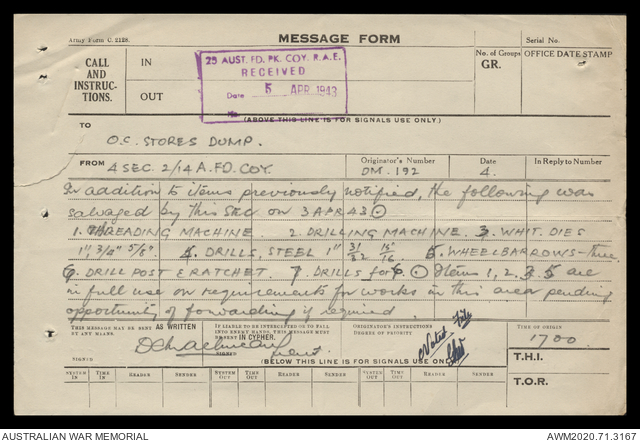 Army Form C. 2128.
MESSAGE FORM
Serial No.
CALL AND INSTRUC- TIONS.
IN
OUT
25 AUST. FD. PK. COY. R.A.E.
RECEIVED
Date 5 APR 1943
No. of Groups
GR.
OFFICE DATE STAMP
(ABOVE THIS LINE IS FOR SIGNALS USE ONLY.)
TO
O.C. STORES DUMP.
FROM
4 SEC. 2/14 A. FD. COY.
Originator's Number
DM. 192
Date
4.
In Reply to Number
In addition to items previously notified, the following was
salvaged by this Sec on 3 APR 43
1. THREADING MACHINE. 2. DRILLING MACHINE. 3. WHIT. DIES
1", 3/4" 5/8". 4. DRILLS, STEEL 1" 31/32 15/16 5. WHEELBARROWS - three
6. DRILL POST & RATCHET. 7. DRILLS for 6. Items 1, 2, 3, 5 are
in full use on requirements for works in this area pending
opportunity of forwarding if required.
THIS MESSAGE MAY BE SENT AS WRITTEN
BY ANY MEANS.
SIGNED
IF LIABLE TO BE INTERCEPTED OR TO FALL
INTO ENEMY HANDS, THIS MESSAGE MUST
BE SENT IN CYPHER.
SIGNED
Lieut.
ORIGINATOR'S INSTRUCTIONS
DEGREE OF PRIORITY
Noted File
TIME OF ORIGIN
1700.
(BELOW THIS LINE IS FOR SIGNALS USE ONLY.)
T.H.I.
T.O.R.
SYSTEM IN
TIME IN
READER
SENDER
SYSTEM OUT
TIME OUT
READER
SENDER
SYSTEM OUT
TIME OUT
READER
SENDER
AUSTRALIAN WAR MEMORIAL
AWM2020.71.3167